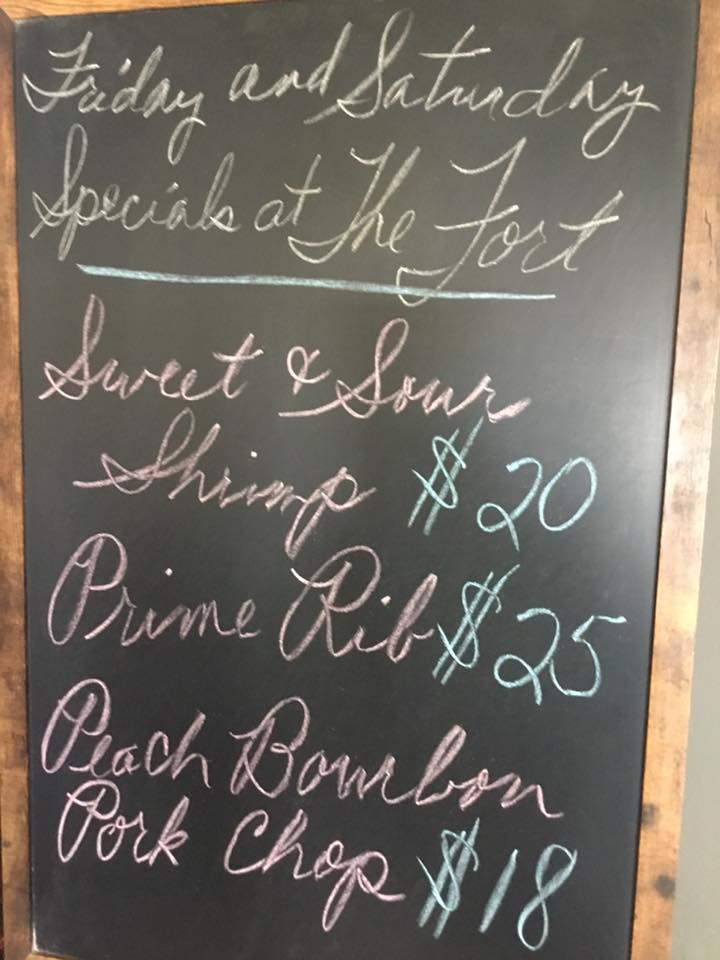 Friday and Saturday
Specials at The Fort
Sweet & Sour
Shrimp $20
Prime Rib $25
Peach Bourbon
Pork Chop $18